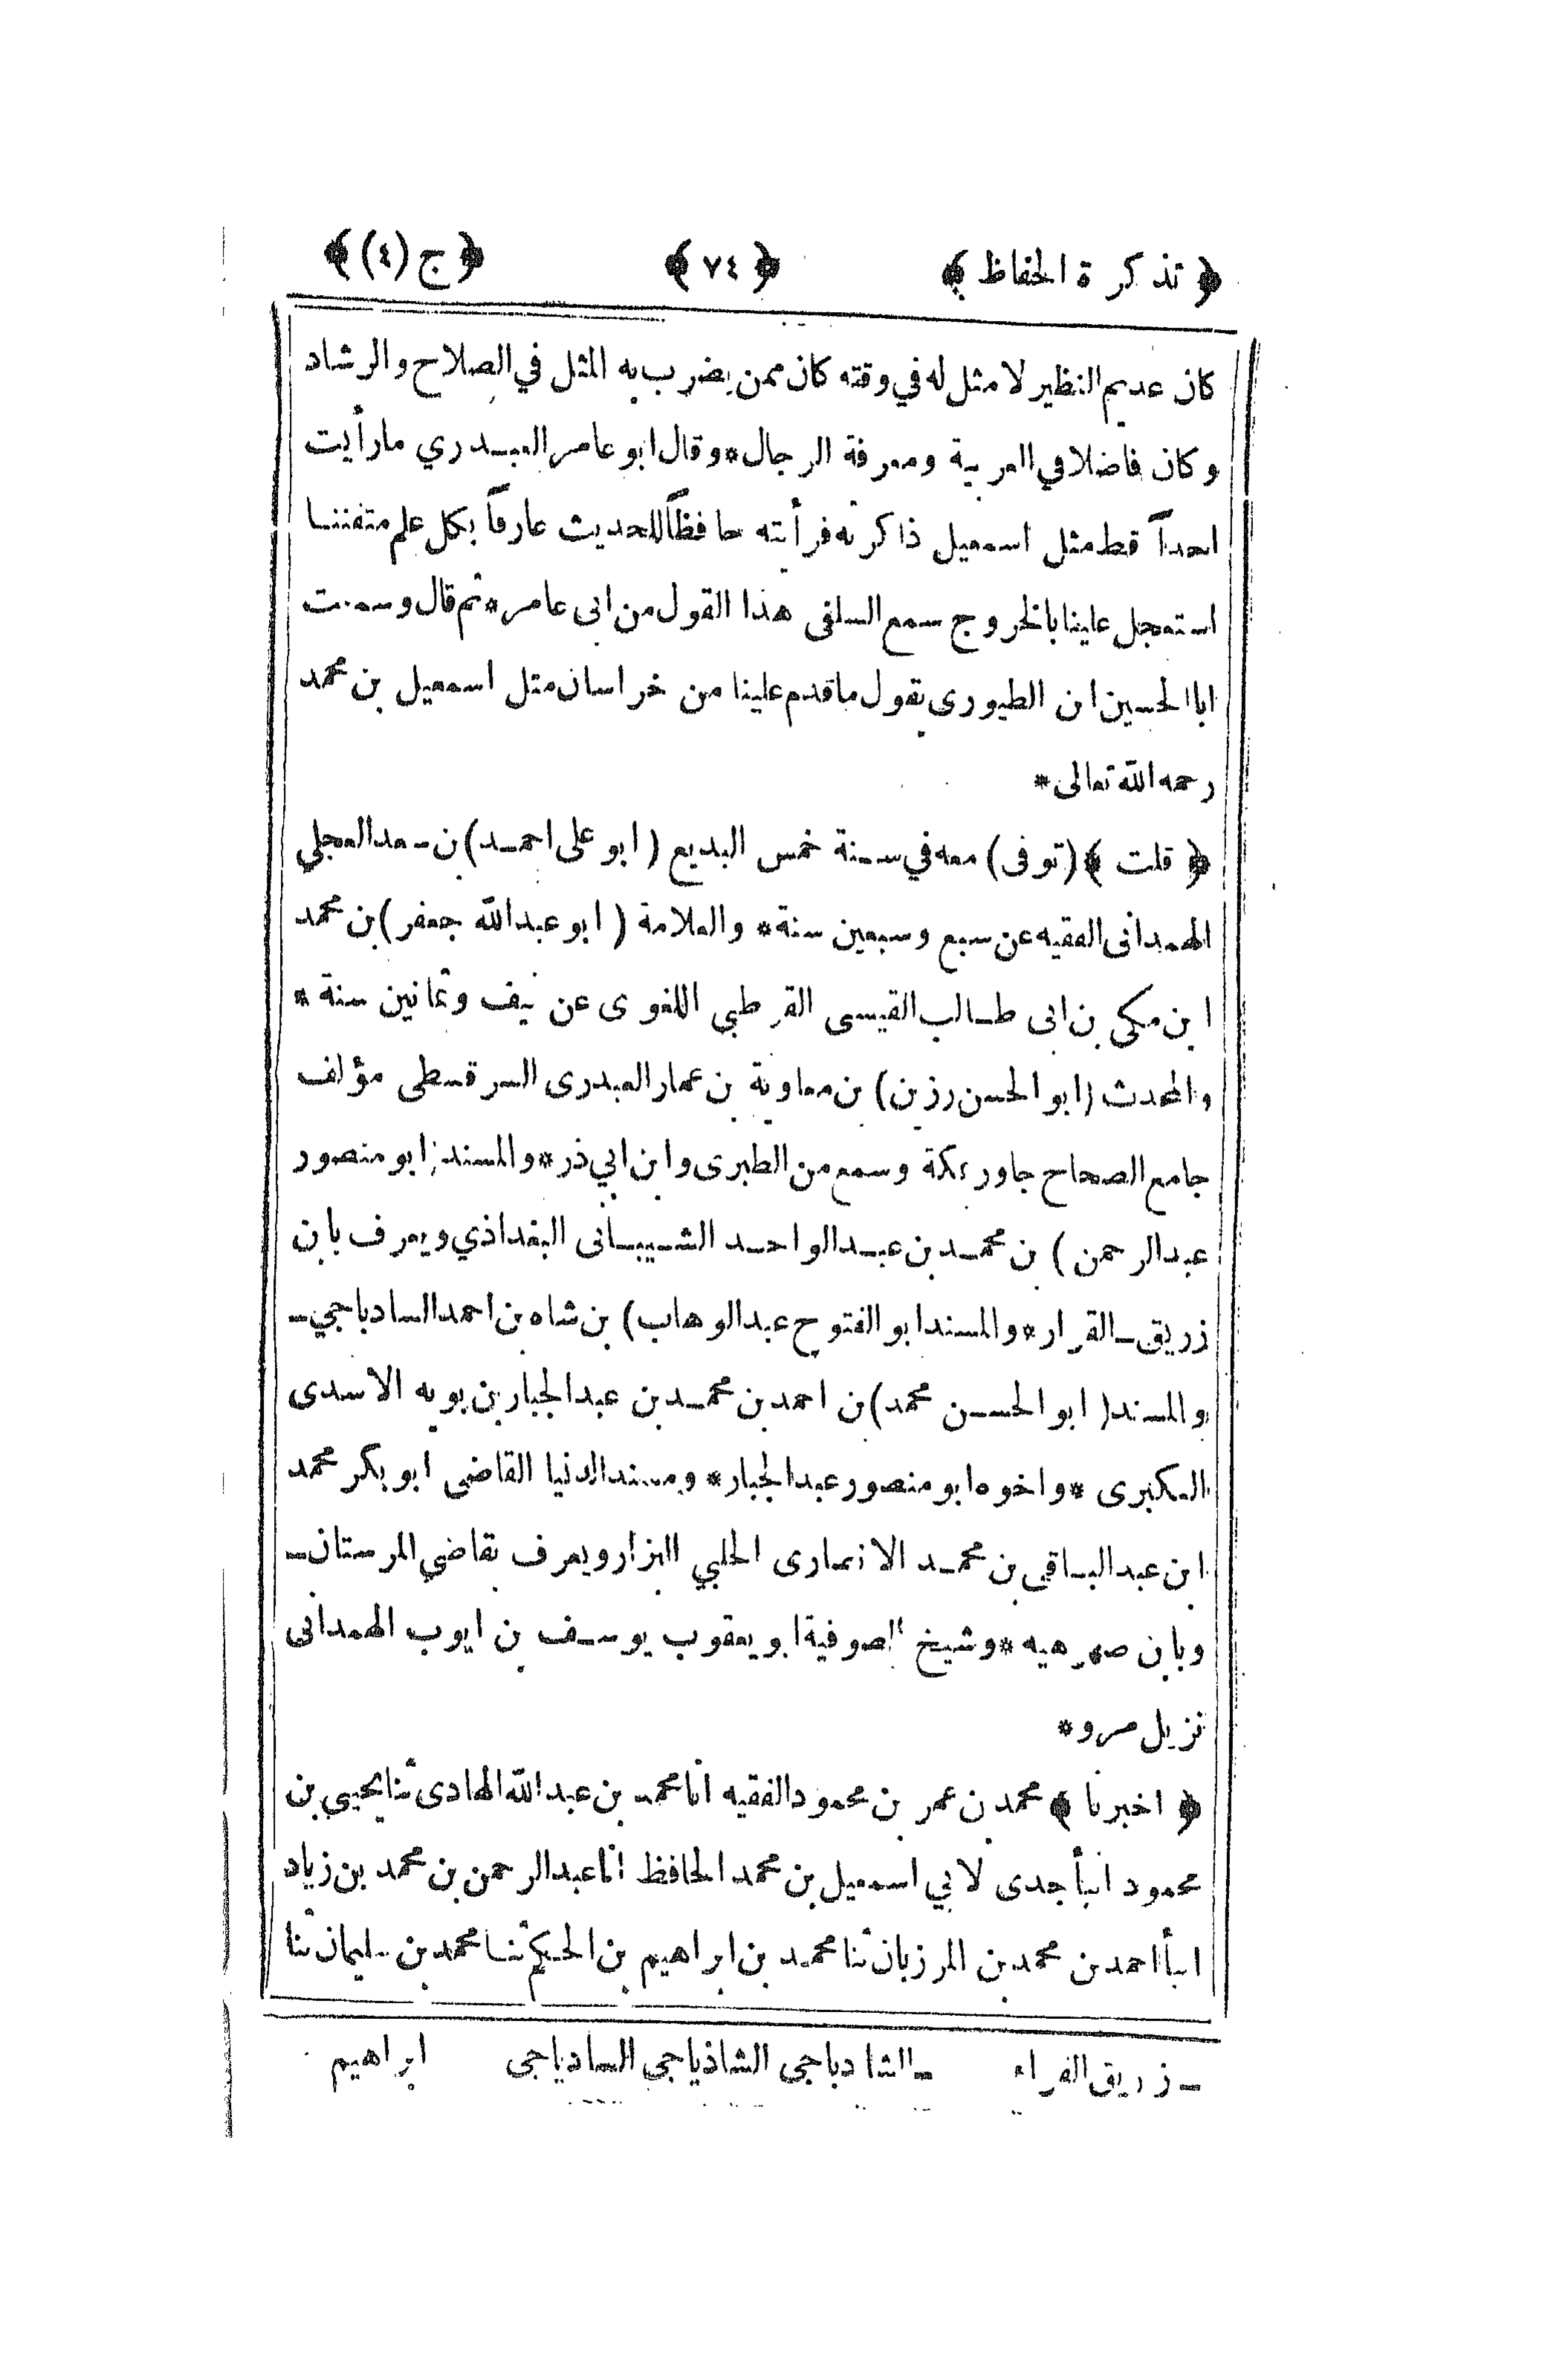 ﴿ تذكرة الحفاظ ﴾ ﴿ ٧٤ ﴾ ﴿ ج (٤) ﴾
كان عديم النظير لا مثل له في وقته كان ممن يضرب به المثل في الصلاح والرشاد
وكان فاضلا في العربية ومعرفة الرجال * وقال ابو عامر العبدري ما رأيت
احداً قط مثل اسمعيل ذاكرته فرأيته حافظاً للحديث عارفاً بكل علم متفننا
استعجل علينا بالخروج سمع السلفى هذا القول من ابى عامر * ثم قال وسمعت
ابا الحسين ابن الطيورى يقول ما قدم علينا من خراسان مثل اسمعيل بن محمد
رحمه الله تعالى *
﴿ قلت ﴾ (توفى) معه في سنة خمس البديع (ابو على احمد) بن سعد العجلي
الهمدانى الفقيه عن سبع وسبعين سنة * والعلامة (ابو عبد الله جعفر) بن محمد
ابن مكى بن ابى طالب القيسى القرطبي اللغوى عن نيف وثمانين سنة *
والمحدث (ابو الحسن رزين) بن معاوية بن عمار العبدرى السرقسطى مؤلف
جامع الصحاح جاور بمكة وسمع من الطبرى وابن ابي ذر * والمسند ابو منصور
عبد الرحمن) بن محمد بن عبد الواحد الشيبانى البغداذي ويعرف بابن
زريق ـ القزار * والمسند ابو الفتوح عبد الوهاب) بن شاه بن احمد السادياجي ـ
والمسند (ابو الحسن محمد) بن احمد بن محمد بن عبد الجبار بن بويه الاسدى
العكبرى * واخوه ابو منصور عبد الجبار * ومسند الدنيا القاضى ابو بكر محمد
ابن عبد الباقي بن محمد الانصارى الحلبي البزار ويعرف بقاضي المرستان ـ
وبابن صهرهيه * وشيخ الصوفية ابو يعقوب يوسف بن ايوب الهمدانى
نزيل مرو *
﴿ اخبرنا ﴾ محمد بن عمر بن محمود الفقيه انا محمد بن عبد الله الهادى ثنا يحيي بن
محمود انبأ جدى لابي اسمعيل بن محمد الحافظ انا عبد الرحمن بن محمد بن زياد
انبأ احمد بن محمد بن المرزبان ثنا محمد بن ابراهيم بن الحكم ثنا محمد بن سليمان ثنا
ـ زريق الفراء ـ الشادباجى الشاذياجى السادياجى ابراهيم